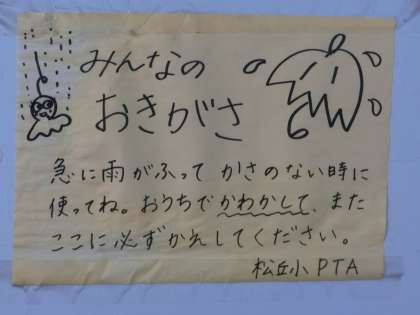 みんなの
おきがさ
急に雨がふって かさのない時に
使ってね。おうちでかわかして、また
ここに必ずかえしてください。
松丘小PTA